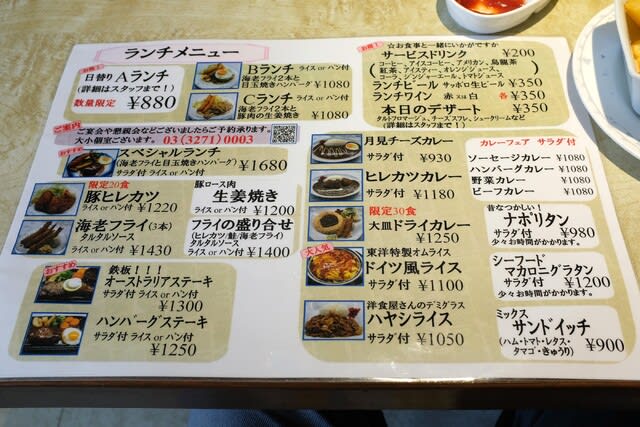 ランチメニュー
お得!
日替りAランチ
(詳細はスタッフまで!)
数量限定 ¥880
Bランチ ライス or パン付
海老フライ2本と
目玉焼きハンバーグ ¥1080
Cランチ ライス or パン付
海老フライ2本と
豚肉の生姜焼き ¥1080
お得!
☆お食事と一緒にいかがですか
サービスドリンク ¥200
(コーヒー、アイスコーヒー、アメリカン、烏龍茶
紅茶、アイスティー、オレンジジュース、
コーラ、ジンジャエール、トマトジュース)
ランチビール サッポロ生ビール ¥350
ランチワイン 赤 or 白 各¥350
本日のデザート ¥350
(タルトフロマージュ、チーズスフレ、シュークリームなど)
(詳細はスタッフまで!)
ご案内
ご宴会や懇親会などございましたらご予約承ります。
大小個室ございます。 03(3271)0003
おすすめ
スペシャルランチ
(海老フライと目玉焼ハンバーグ)
ライス or パン付 ¥1680
限定20食
豚ヒレカツ
ライス or パン付 ¥1220
豚ロース肉
生姜焼き
ライス or パン付 ¥1200
海老フライ(3本)
タルタルソース
ライス or パン付 ¥1430
フライの盛り合せ
(ヒレカツ/鮭/海老フライ)
タルタルソース
ライス or パン付 ¥1400
おすすめ
鉄板!!!
オーストラリアステーキ
サラダ付 ライス or パン付
¥1300
ハンバーグステーキ
サラダ付 ライス or パン付
¥1250
月見チーズカレー
サラダ付 ¥930
ヒレカツカレー
サラダ付 ¥1180
限定30食
大皿ドライカレー
サラダ付 ¥1250
大人気
東洋特製オムライス
ドイツ風ライス
サラダ付 ¥1100
洋食屋さんのデミグラス
ハヤシライス
サラダ付 ¥1050
カレーフェア サラダ付
ソーセージカレー ¥1080
ハンバーグカレー ¥1080
野菜カレー ¥1080
ビーフカレー ¥1080
昔なつかしい!
ナポリタン
サラダ付 ¥980
少々お時間がかかります。
シーフード
マカロニグラタン
サラダ付 ¥1200
少々お時間がかかります。
ミックス
サンドイッチ
(ハム・トマト・レタス・
タマゴ・きゅうり) ¥900